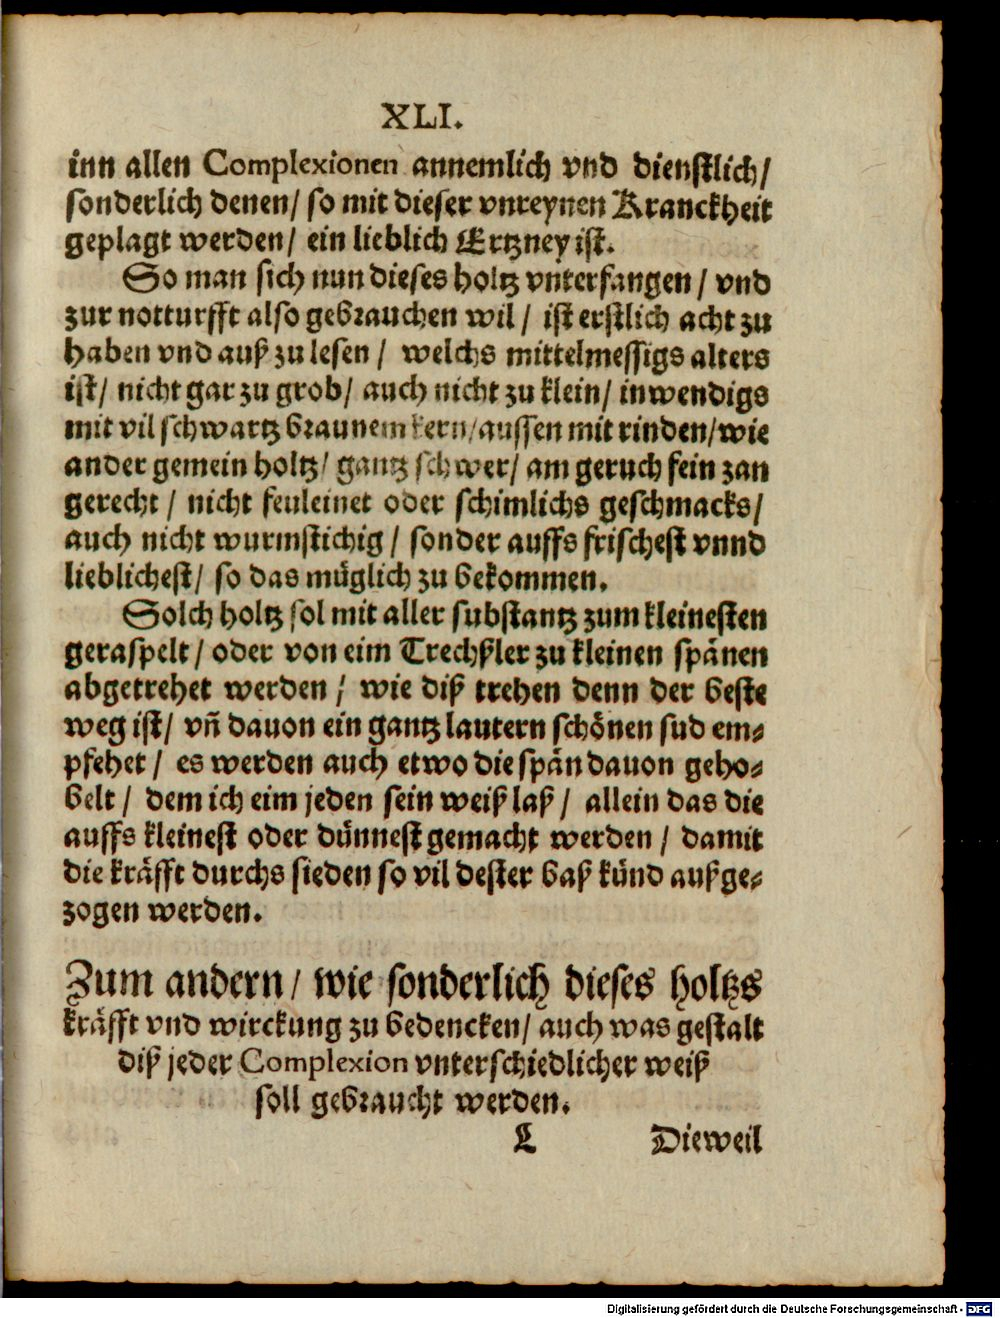 XLI.
inn allen Complexionen annemlich vnd dienstlich/
sonderlich denen/ so mit dieser vnreynen Kranckheit
geplagt werden/ ein lieblich Ertzney ist.
So man sich nun dieses holtz vnterfangen / vnd
zur notturfft also gebrauchen wil / ist erstlich acht zu
haben vnd auß zu lesen / welchs mittelmessigs alters
ist/ nicht gar zu grob/ auch nicht zu klein/ inwendigs
mit vil schwartz braunem kern/aussen mit rinden/wie
ander gemein holtz/ gantz schwer/ am geruch fein zan
gerecht / nicht feuleinet oder schimlichs geschmacks/
auch nicht wurmstichig / sonder auffs frischest vnnd
lieblichest/ so das müglich zu bekommen.
Solch holtz sol mit aller substantz zum kleinesten
geraspelt/ oder von eim Trechßler zu kleinen spänen
abgetrehet werden / wie diß trehen denn der beste
weg ist/ vñ dauon ein gantz lautern schönen sud em⸗
pfehet/ es werden auch etwo die spän dauon geho⸗
belt/ dem ich eim jeden sein weiß laß/ allein das die
auffs kleinest oder dünnest gemacht werden / damit
die kräfft durchs sieden so vil dester baß künd außge⸗
zogen werden.
Zum andern/ wie sonderlich dieses holtzs
kräfft vnd wirckung zu bedencken/ auch was gestalt
diß jeder Complexion vnterschiedlicher weiß
soll gebraucht werden.
L Dieweil
Digitalisierung gefördert durch die Deutsche Forschungsgemeinschaft - DFG